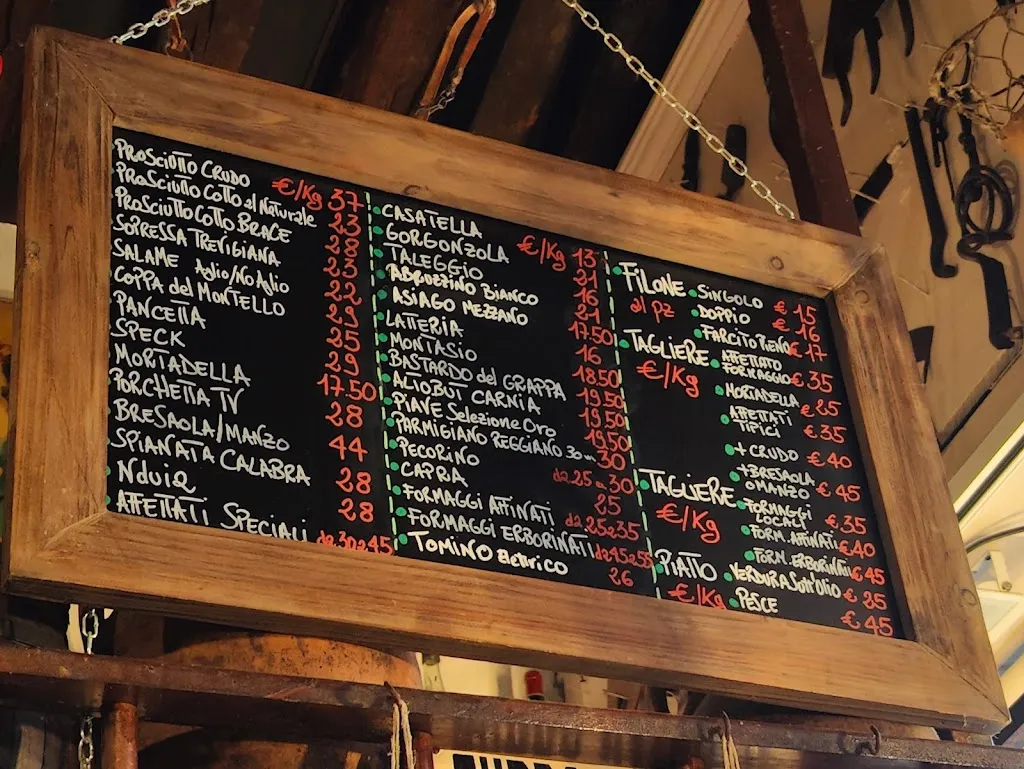 PROSCIUTTO CRUDO €/Kg 37
PROSCIUTTO COTTO al Naturale 23
PROSCIUTTO COTTO BRACE 28
SOPRESSA TREVIGIANA 23
SALAME Aglio/No Aglio 22
COPPA del MONTELLO 23
PANCETTA 25
SPECK 29
MORTADELLA 17.50
PORCHETTA TV 28
BRESAOLA/MANZO 44
SPIANATA CALABRA 28
Nduia 28
AFFETTATI SPECIALI da 30 a 45
CASATELLA €/Kg 13
GORGONZOLA 21
TALEGGIO 16
ABRUZZINO BIANCO 21
ASIAGO MEZZANO 17.50
LATTERIA 16
MONTASIO 18.50
BASTARDO del GRAPPA 19.50
ALIOBUT CARNIA 19.50
PIAVE Selezione Oro 19.50
PARMIGIANO REGGIANO 30 m 30
PECORINO da 25 a 30
CAPRA 25
FORMAGGI AFFINATI da 25 a 35
FORMAGGI ERBORINATI da 45 a 55
TOMINO 26
FILONE SINGOLO € 15
al pz DOPPIO € 16
FARCITO PIENO € 17
TAGLIERE AFFETTATO
€/Kg FORMAGGIO € 35
MORTADELLA € 25
AFFETTATI
TIPICI € 35
+ CRUDO € 40
+ BRESAOLA
O MANZO € 45
TAGLIERE FORMAGGI
€/Kg LOCALI € 35
FORM. AFFINATI € 40
FORM. ERBORINATI € 45
PIATTO VERDURA SOTT'OLIO € 25
€/Kg PESCE € 45